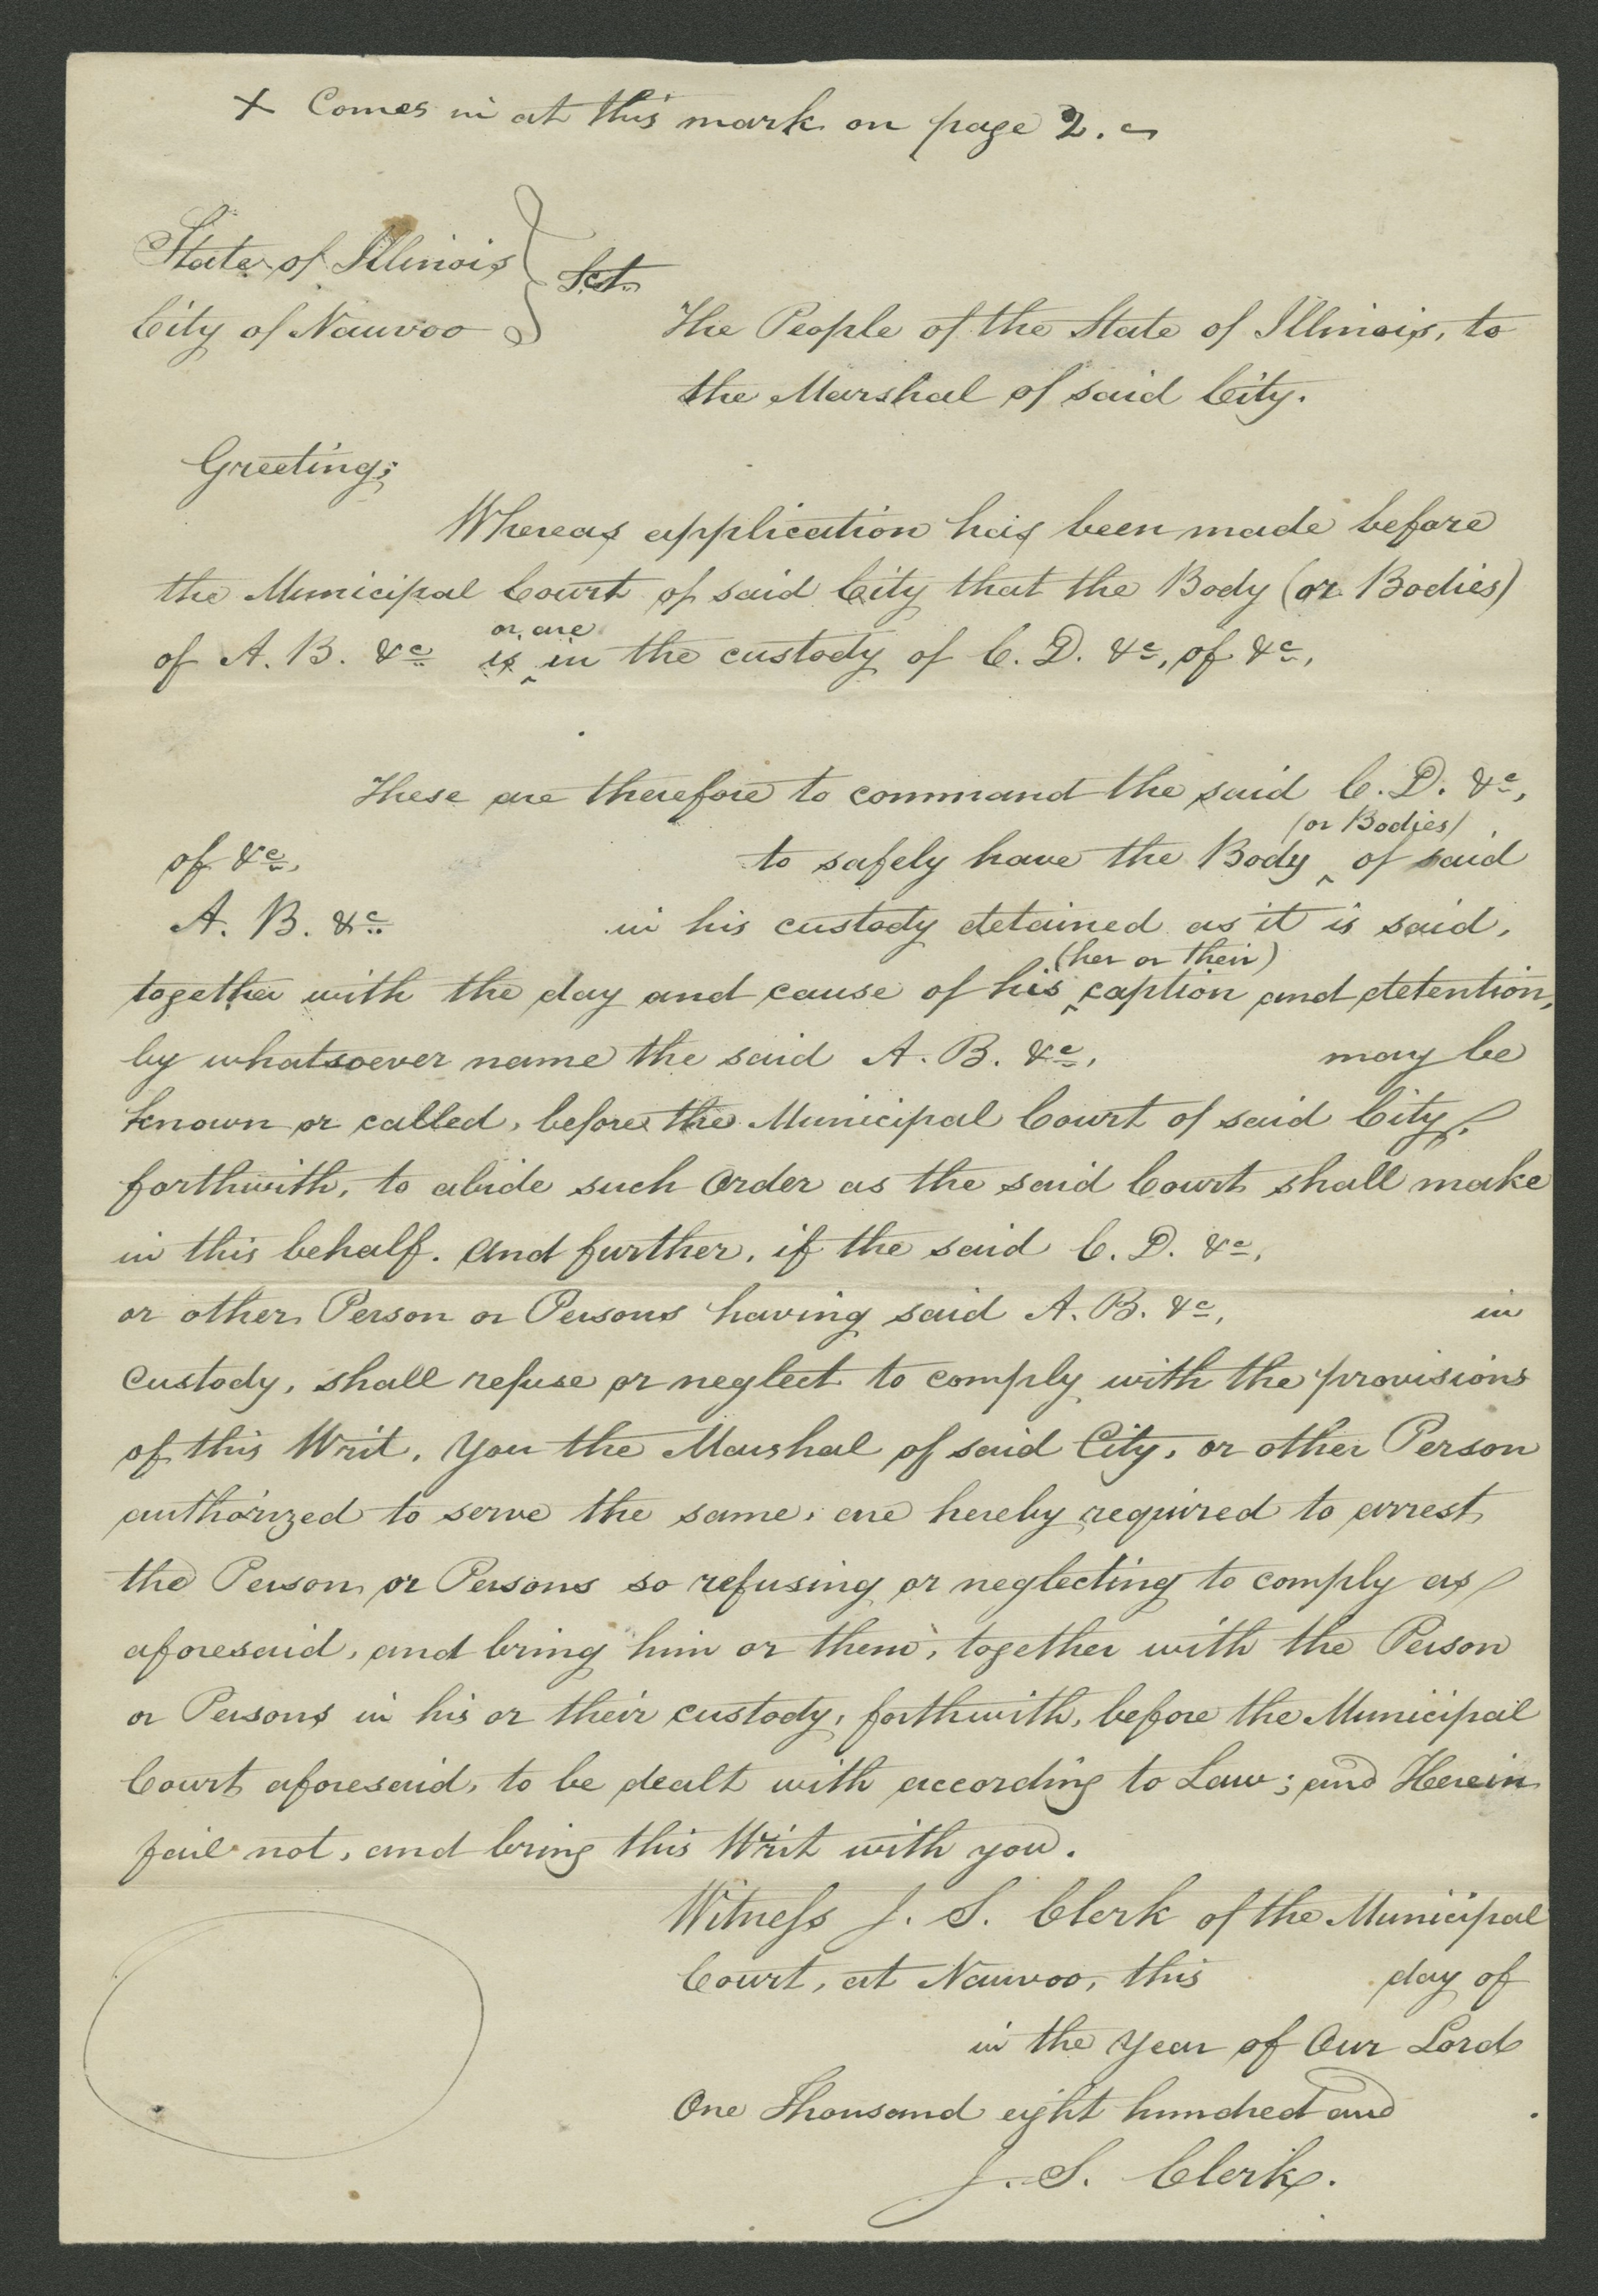 + Comes in at this mark on page 2.
State of Illinois } Sct.
City of Nauvoo
The People of the State of Illinois, to
the Marshal of said City.
Greeting;
Whereas application has been made before
the Municipal Court of said City that the Body (or Bodies)
or are
of A. B. &c is ^ in the custody of C. D. &c, of &c,
These are therefore to command the said C. D. &c,
(or Bodies)
of &c, to safely have the Body ^ of said
A. B. &c in his custody detained as it is said,
(her or their)
together with the day and cause of his ^ caption and detention,
by whatsoever name the said A. B. &c, may be
known or called, before the Municipal Court of said City,
forthwith, to abide such Order as the said Court shall make
in this behalf. And further, if the said C. D. &c,
or other Person or Persons having said A. B. &c, in
custody, shall refuse or neglect to comply with the provisions
of this Writ, You the Marshal of said City, or other Person
authorized to serve the same, are hereby required to arrest
the Person or Persons so refusing or neglecting to comply as
aforesaid, and bring him or them, together with the Person
or Persons in his or their custody, forthwith, before the Municipal
Court aforesaid, to be dealt with according to Law; and Herein
fail not, and bring this Writ with you.
Witness J. S. Clerk of the Municipal
Court, at Nauvoo, this day of
in the Year of Our Lord
One Thousand eight hundred and .
J. S. Clerk.